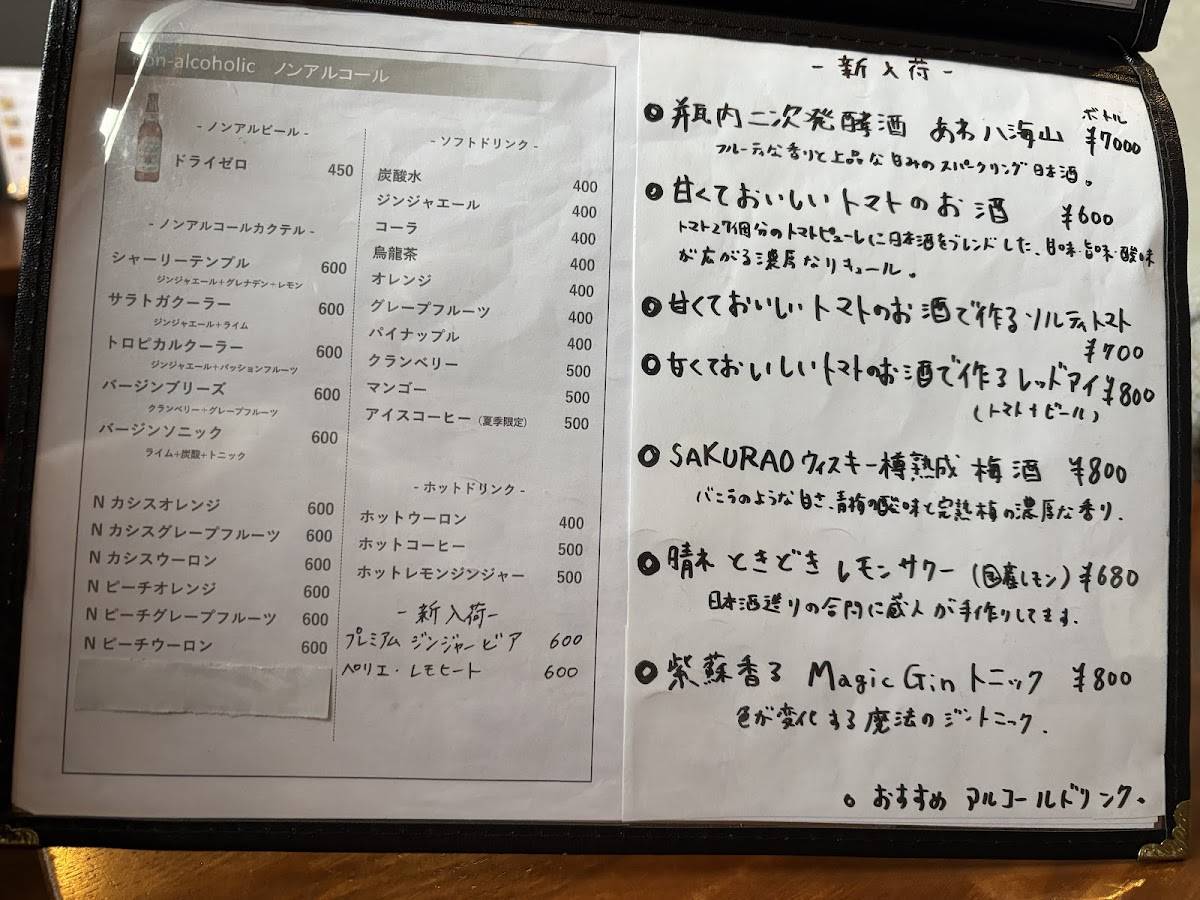 non-alcoholic ノンアルコール
- ノンアルビール -
ドライゼロ 450
- ノンアルコールカクテル -
シャーリーテンプル 600
ジンジャエール+グレナデン+レモン
サラトガクーラー 600
ジンジャエール+ライム
トロピカルクーラー 600
ジンジャエール+パッションフルーツ
バージンブリーズ 600
クランベリー+グレープフルーツ
バージンソニック 600
ライム+炭酸+トニック
N カシスオレンジ 600
N カシスグレープフルーツ 600
N カシスウーロン 600
N ピーチオレンジ 600
N ピーチグレープフルーツ 600
N ピーチウーロン 600
- ソフトドリンク -
炭酸水 400
ジンジャエール 400
コーラ 400
烏龍茶 400
オレンジ 400
グレープフルーツ 400
パイナップル 400
クランベリー 500
マンゴー 500
アイスコーヒー (夏季限定) 500
- ホットドリンク -
ホットウーロン 400
ホットコーヒー 500
ホットレモンジンジャー 500
- 新入荷 -
プレミアム ジンジャービア 600
ペリエ・レモヒート 600
- 新入荷 -
瓶内二次発酵酒 あわ八海山 ボトル ¥7000
フルーティな香りと上品な甘みのスパークリング日本酒。
甘くておいしいトマトのお酒 ¥600
トマト27個分のトマトピューレに日本酒をブレンドした、甘味・旨味・酸味
が広がる濃厚なリキュール。
甘くておいしいトマトのお酒で作るソルティトマト
¥700
甘くておいしいトマトのお酒で作るレッドアイ ¥800
(トマト+ビール)
SAKURAO ウィスキー樽熟成 梅酒 ¥800
バニラのような甘さ、青梅の酸味と完熟梅の濃厚な香り.
晴れ ときどき レモンサワー (国産レモン) ¥680
日本酒造りの合間に蔵人が手作りしてます.
紫蘇香る Magic Gin トニック ¥800
色が変化する魔法のジントニック.
○ おすすめ アルコールドリンク。